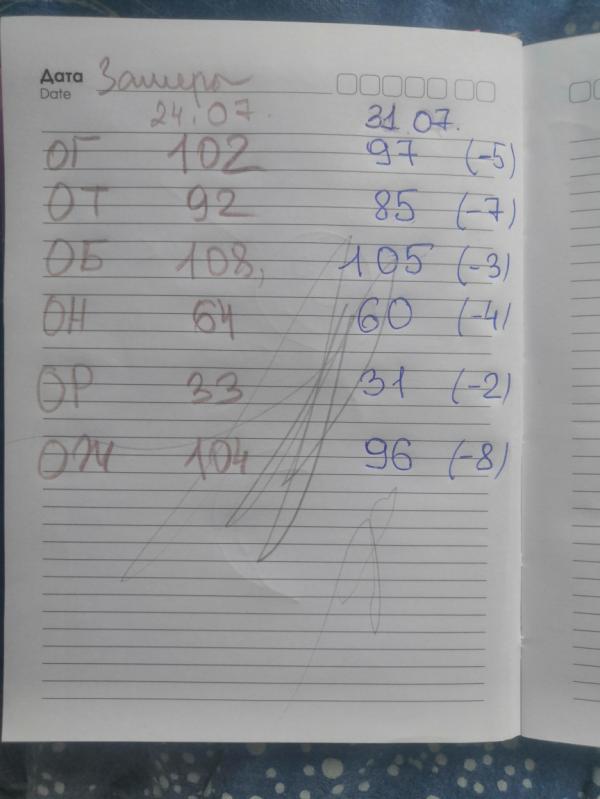 Дата Замеры
Date
24.07. 31.07.
ОГ 102 97 (-5)
ОТ 92 85 (-7)
ОБ 108, 105 (-3)
ОН 64 60 (-4)
ОР 33 31 (-2)
ОЖ 104 96 (-8)